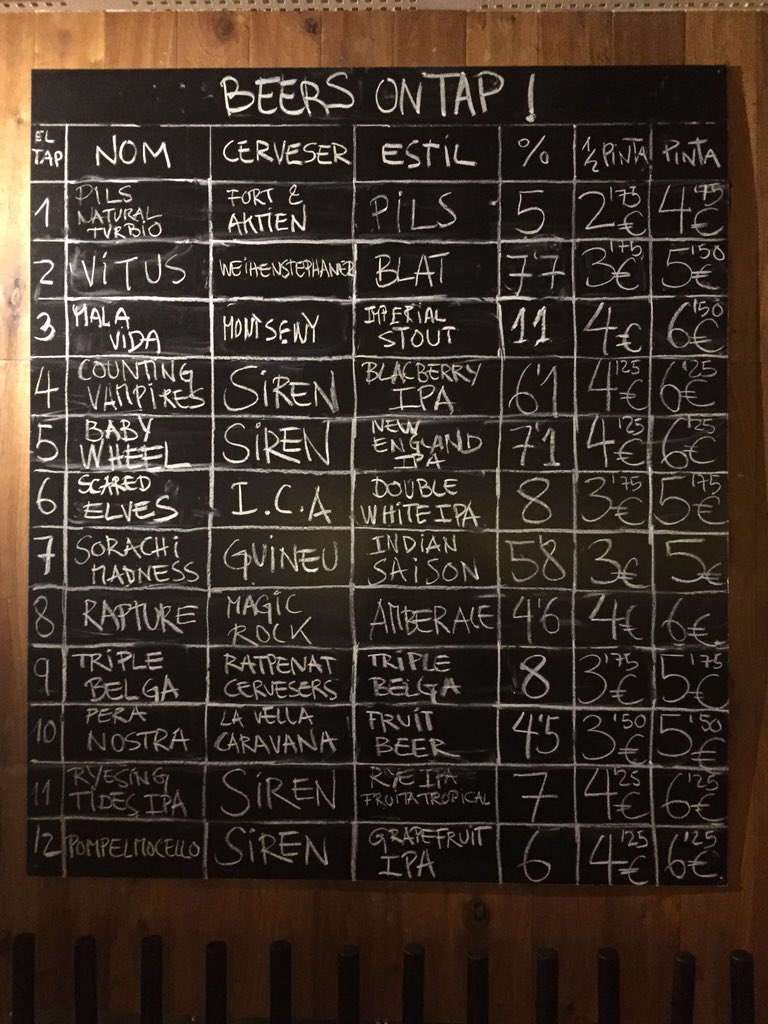 BEERS ON TAP !
EL TAP NOM CERVESER ESTIL % 1/2 PINTA PINTA
1 PILS NATURAL TVRBIO FORT & AKTIEN PILS 5 2'75€ 4'75€
2 VITUS WEIHENSTEPHANER BLAT 7'7 3'75€ 5'50€
3 MALA VIDA MONTSENY IMPERIAL STOUT 11 4€ 6'50€
4 COUNTING VAMPIRES SIREN BLACBERRY IPA 6'1 4'25€ 6'25€
5 BABY WHEEL SIREN NEW ENGLAND IPA 7'1 4'25€ 6'25€
6 SCARED ELVES I.C.A DOUBLE WHITE IPA 8 3'75€ 5'75€
7 SORACHI MADNESS GUINEU INDIAN SAISON 5'8 3€ 5€
8 RAPTURE MAGIC ROCK AMBER ALE 4'6 4€ 6€
9 TRIPLE BELGA RATPENAT CERVESERS TRIPLE BELGA 8 3'75€ 5'75€
10 PERA NOSTRA LA VELLA CARAVANA FRUIT BEER 4'5 3'50€ 5'50€
11 RYESING TIDES IPA SIREN RYE IPA FRUITA TROPICAL 7 4'25€ 6'25€
12 POMPELMOCELLO SIREN GRAPEFRUIT IPA 6 4'25€ 6'25€